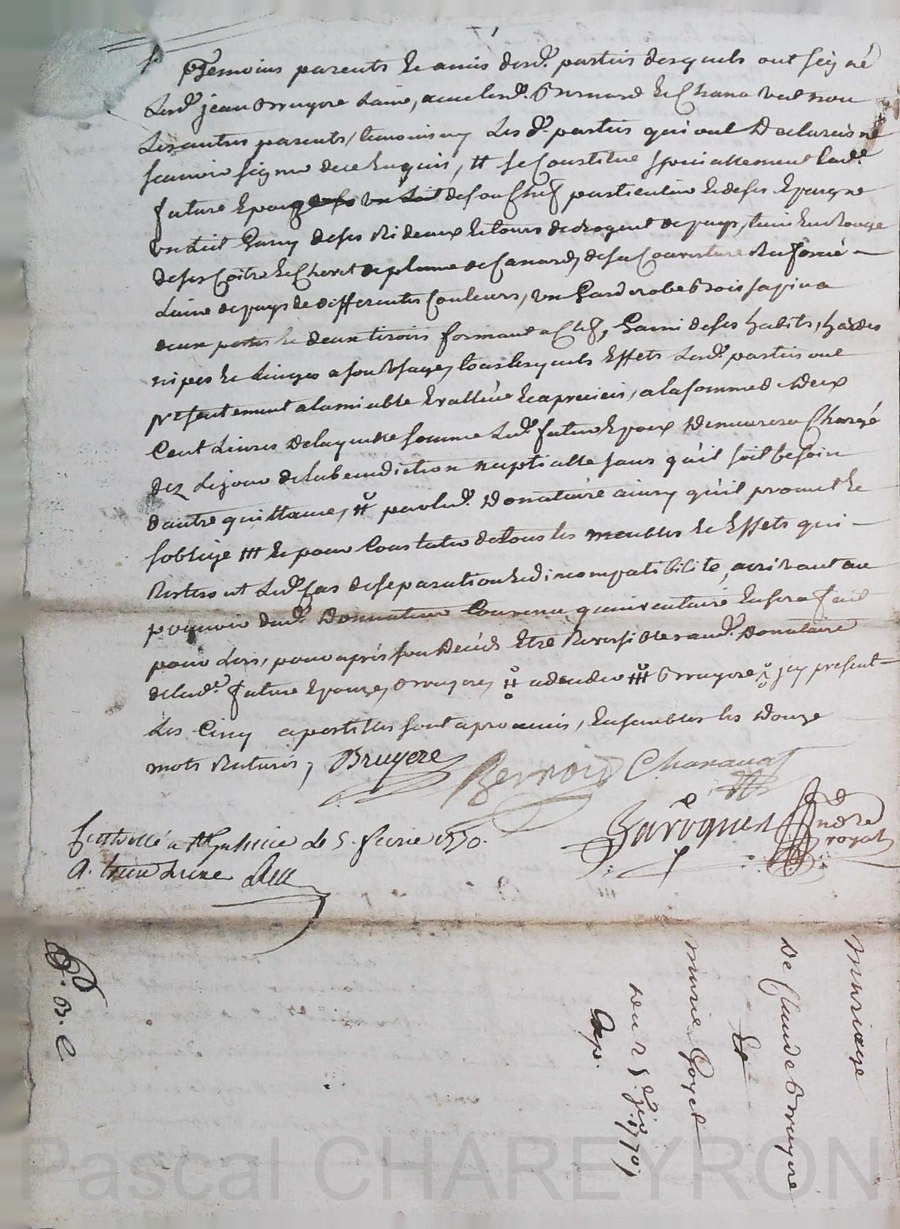 Temoins parents et amis desd. parties desquels ont signé
Lesd. jean Bruyere Laine, avec lesd. Bernard et Chanavat non
Les autres parents, temoins ny Les d. parties qui ont Declaré ne
scavoir signer de ce Enquis, # se Constitue specialement lad.
future Epouze un Lit de son chef particulier et de ses Epargne
un Lit Garny de ses Rideaux et tours de cadis de pays, teint En Rouge
de ses Coitre et Chevet de plume de Canard, de sa Couverture
Laine de pays de differentes Couleurs, un Garderobe Bois sapin a
deux portes et deux tiroirs fermant a Clef, Garni de ses habits, hardes
nipes et Linges a son Usage, tous lesquels Effets Lesd. parties ont
presentement a lamiable Evallué et apreciés, a la somme de Deux
Cent Livres De laquelle somme Led. futur Epoux Demeurera Chargé
dez Le jour de la benediction nuptialle sans qu'il soit besoin
d'autre quittance, # par led. Donataire ainsy qu'il promet et
soblige ### et pour Constater de tous les meubles et Effets qui
Resteront aud. Cas de separation et dincompatibilité, arrivant au
pouvoir dud. Donnateur Convenu qu'inventaire En sera fait
pour Lors, pour après son Decéds Etre Reversible aud. Donataire
de lad. future Epouze, Bruyere, # adendre ### Bruyere, jay present
Les Cinq apostilles sont aprouvés, Ensembles les Douze
mots Raturés, Bruyere
Bernard Chanavat
Baroques
Nore
royal
Controllé a St Galmier Le 5 fevrier 1770.
Mariage
De Claude Bruyere
Et
Marie Goyet
Du 25 Jer. 1770
Exp.
G. B. C
Pascal CHAREYRON